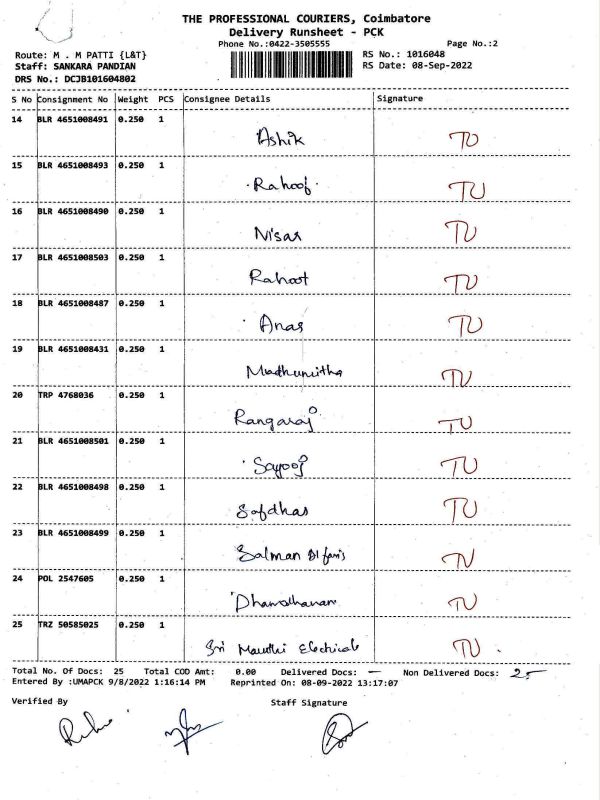 THE PROFESSIONAL COURIERS, Coimbatore
Delivery Runsheet - PCK
Phone No.:0422-3505555 Page No.:2
Route: M . M PATTI {L&T} RS No.: 1016048
Staff: SANKARA PANDIAN RS Date: 08-Sep-2022
DRS No.: DCJB101604802
S No Consignment No Weight PCS Consignee Details Signature
14 BLR 4651008491 0.250 1 Ashik TU
15 BLR 4651008493 0.250 1 Rahoof TU
16 BLR 4651008490 0.250 1 Nisar TU
17 BLR 4651008503 0.250 1 Rahoof TU
18 BLR 4651008487 0.250 1 Anas TU
19 BLR 4651008431 0.250 1 Madhumitha TU
20 TRP 4768036 0.250 1 Rangaraj TU
21 BLR 4651008501 0.250 1 Sayooj TU
22 BLR 4651008498 0.250 1 Safdhas TU
23 BLR 4651008499 0.250 1 Salman TU
24 POL 2547605 0.250 1 Dhamodharan TU
25 TRZ 50585025 0.250 1 Sri Maruthi Electricals TU
Total No. Of Docs: 25 Total COD Amt: 0.00 Delivered Docs: — Non Delivered Docs: 25
Entered By :UMAPCK 9/8/2022 1:16:14 PM Reprinted On: 08-09-2022 13:17:07
Verified By Staff Signature